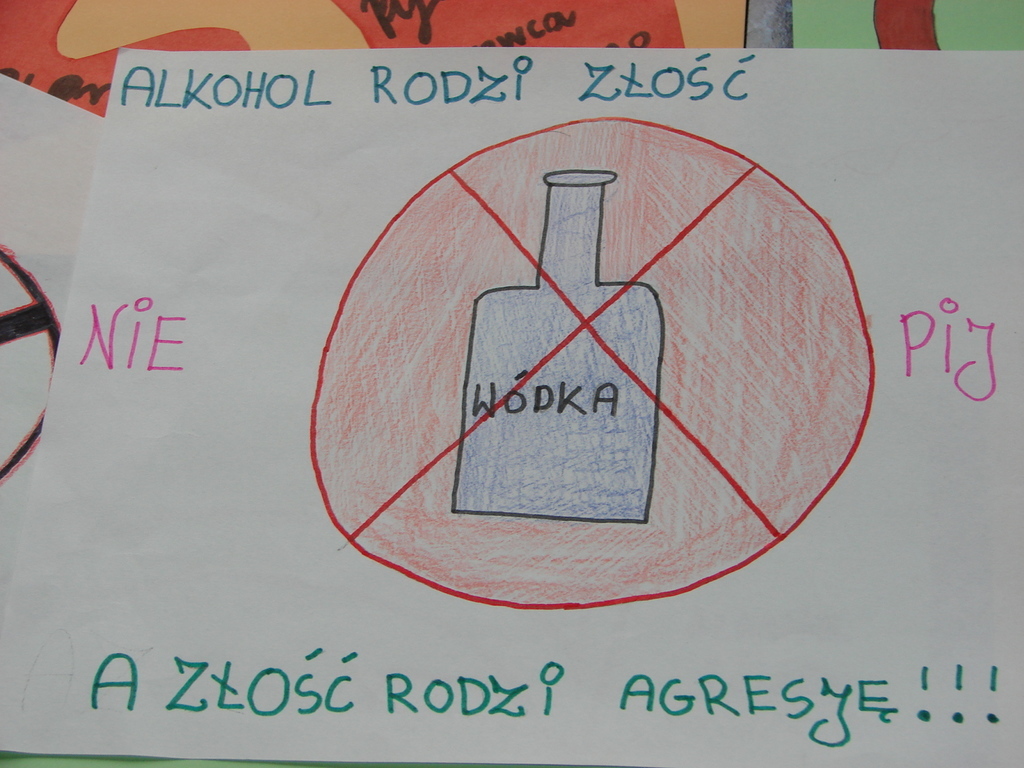 ALKOHOL RODZI ZŁOŚĆ
NIE PIJ
WÓDKA
A ZŁOŚĆ RODZI AGRESJĘ!!!